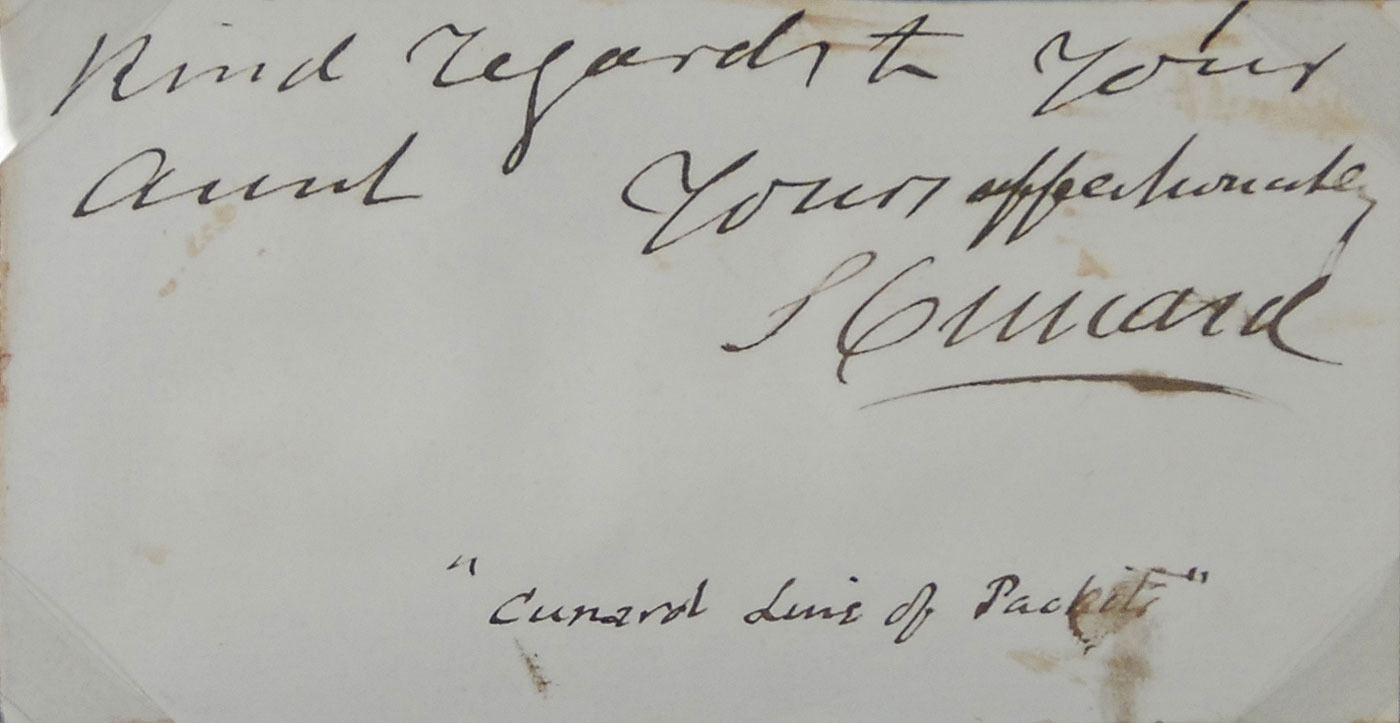 Kind regards to your
Aunt Yours affectionately
S Cunard
"Cunard Line of Packets"